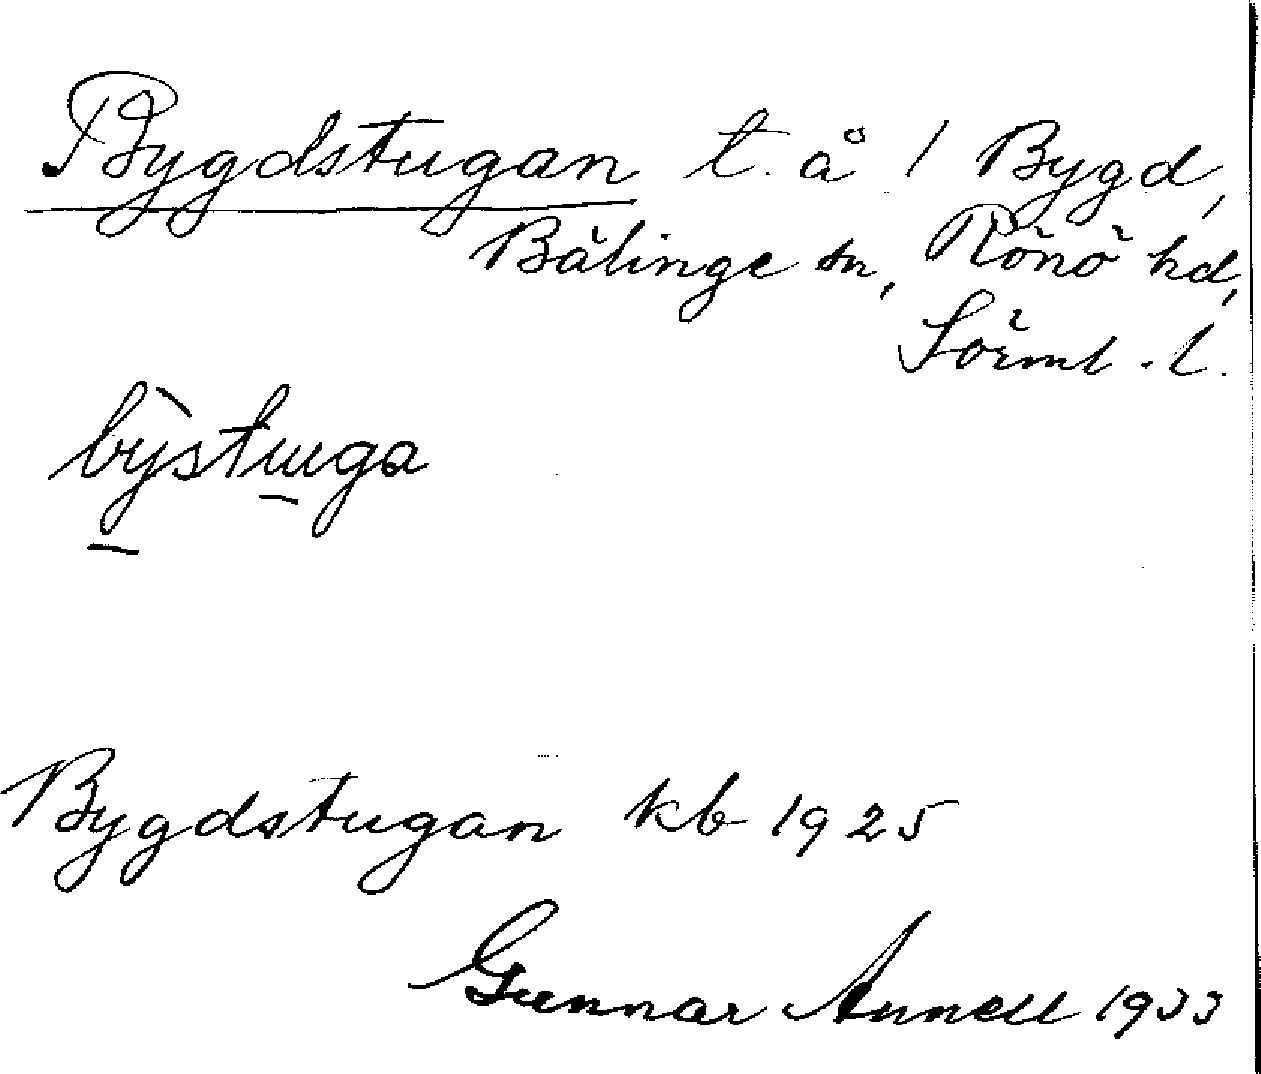 Bygdstugan t. å 1 Bygd,
Bälinge sn, Rönö hd,
Sörml. l.
bỳstuga
Bygdstugan kb 1925
Gunnar Annell 1933